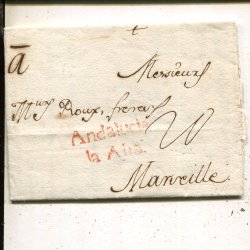 ā
Messieurs
Mrs Roux, freres
Andalucia
la Alta
Marseille